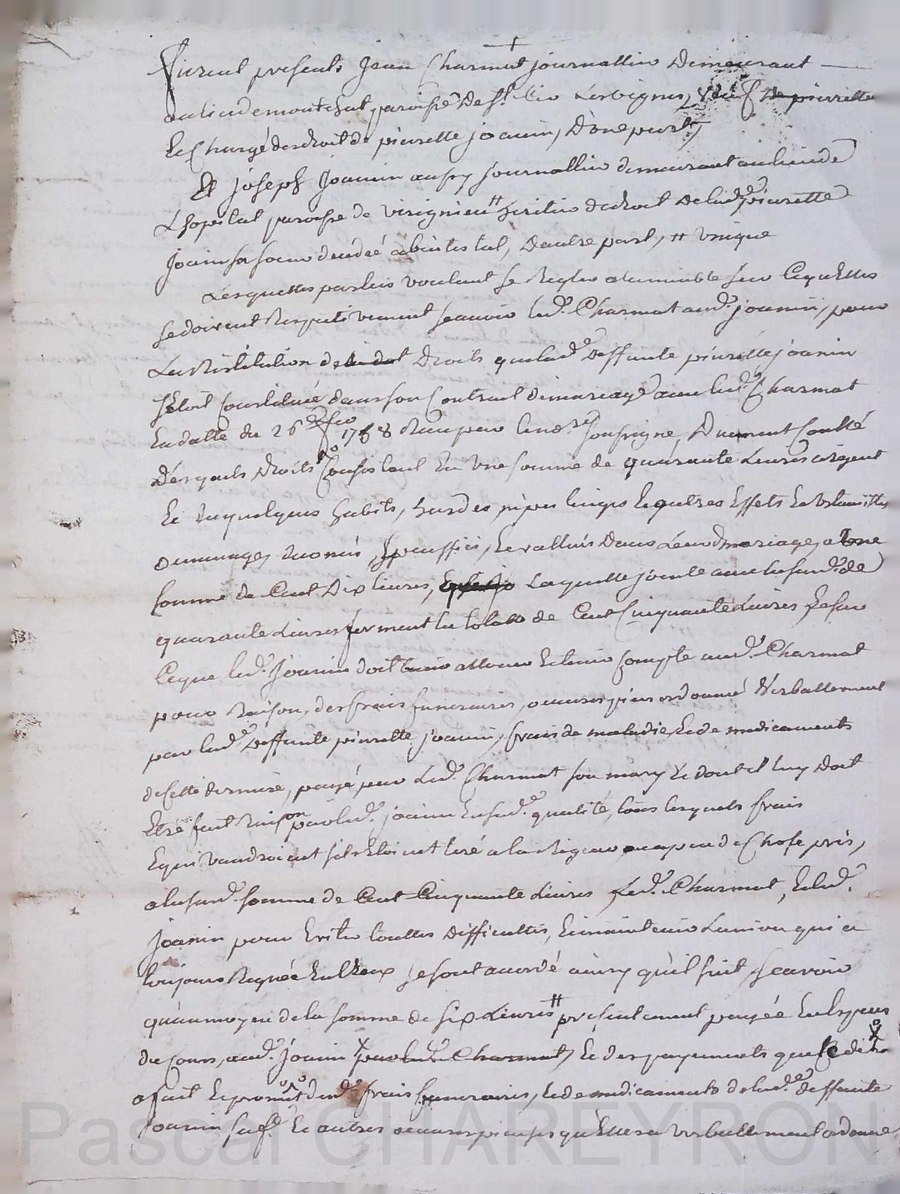 Furent presents Jean Charmat journallier Demeurant
au lieu de montchat paroisse De St
Et Chargé des droit de pierrette joanin, D'une part,
Et joseph Joanin aussy journallier demeurant au lieu de
L'hopital paroisse de virignieu heritier de droit De lade pierrette
Joanin sa soeur decedé abintestat, D'autre part, unique
Lesquelles parties voulant se Regler a l'amiable sur Ce qu'Elles
se doivent Respectivement scavoir led. Charmat aud. joanin, pour
La Restitution de Droits que lad. Deffunte pierrette joanin
s'Etoit Constituée dans son Contrat de mariage avec led. Charmat
En datte du 26 Recu par le no.re soussigné, Duement Controllé
Desquels Droits Consistant En Une somme de quarante Livres argent
Et En quelques habits, hardes, nipes linges Et autres Effets Et Ustancilles
de menages Evalués Dans mariage a Une
somme de Cent Dix livres, Laquelle jointe avec la susd. de
quarante Livres forment la totale de Cent Cinquante Livres, Et sur
Ce que led. Joanin doit allouer Et tenir Compte aud. Charmat
pour Raison, des frais funeraires, oeuvres pies ordonné Verballement
par lade Deffunte pierrette joanin, frais de maladie, Et de medicaments
de Cette derniere, payé par Led. Charmat son mary Et dont il luy Doit
Etre fait Raison par led. joanin En sude qualité, tous lesquels frais
Equivaudroient s'ils Etoient tiré a la Rigueur a peu de Chose près,
a la susd. somme de Cent Cinquante Livres Led. Charmat, Et led.
Joanin pour Eviter touttes Difficultés, Et maintenir L'union qui a
toujours Regnée Entr'eux se sont accordé ainsy qu'il suit, scavoir
qu'au moyen de la somme de six Livres presentement payée En Especes
de Cours, aud. joanin par led. Charmat, Et des payements que
a fait Et promet frais funeraires, Et de medicaments de lade deffunte
joanin sa Et autres oeuvres pies qu'Elle a verballement ordonné
Pascal CHAREYRON